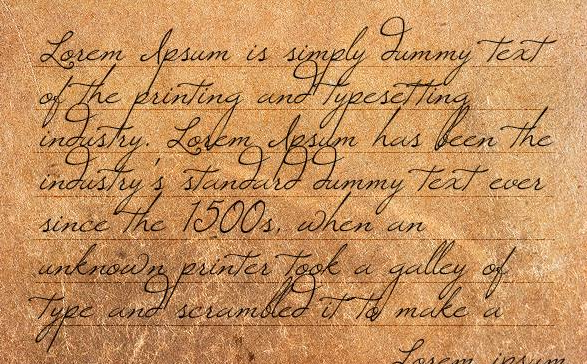 Lorem Ipsum is simply dummy text
of the printing and typesetting
industry. Lorem Ipsum has been the
industry's standard dummy text ever
since the 1500s, when an
unknown printer took a galley of
type and scrambled it to make a
Lorem ipsum